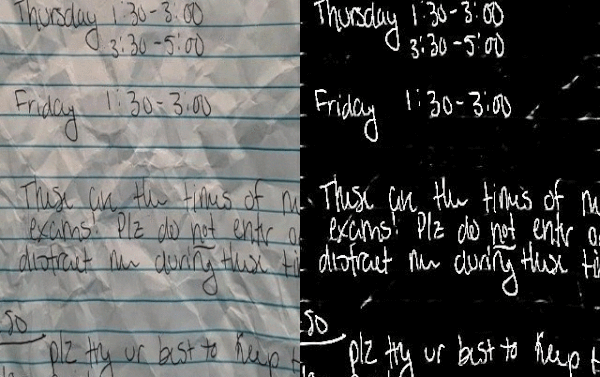 Thursday 1:30-3:00
3:30-5:00
Friday 1:30-3:00
These are the times of
exams! Plz do not enter
distract me during these
so
plz try ur best to keep
Thursday 1:30-3:00
3:30-5:00
Friday 1:30-3:00
These are the times of
exams! Plz do not enter
distract me during these
so
plz try ur best to keep